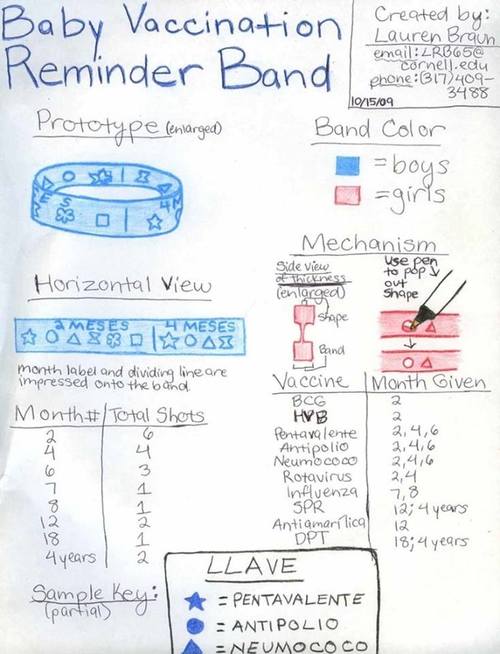 Baby Vaccination
Reminder Band
Created by:
Lauren Braun
email: LRB65@
cornell.edu
phone: (317)409-
3488
10/15/09
Prototype (enlarged)
2 MESES
Band Color
= boys
= girls
Mechanism
Side view
of thickness
(enlarged)
Shape
Band
use pen
to pop
out
shape
Horizontal View
2 MESES 4 MESES
month label and dividing line are
impressed onto the band
Month# Total Shots
2 6
4 4
6 3
7 1
8 1
12 2
18 1
4 years 2
Vaccine Month Given
BCG 2
2
Pentavalente 2, 4, 6
Antipolio 2, 4, 6
Neumococo 2, 4, 6
Rotavirus 2, 4
Influenza 7, 8
SPR 12; 4 years
Antiamarílica 12
DPT 18; 4 years
Sample Key:
(partial)
LLAVE
= PENTAVALENTE
= ANTIPOLIO
= NEUMOCOCO